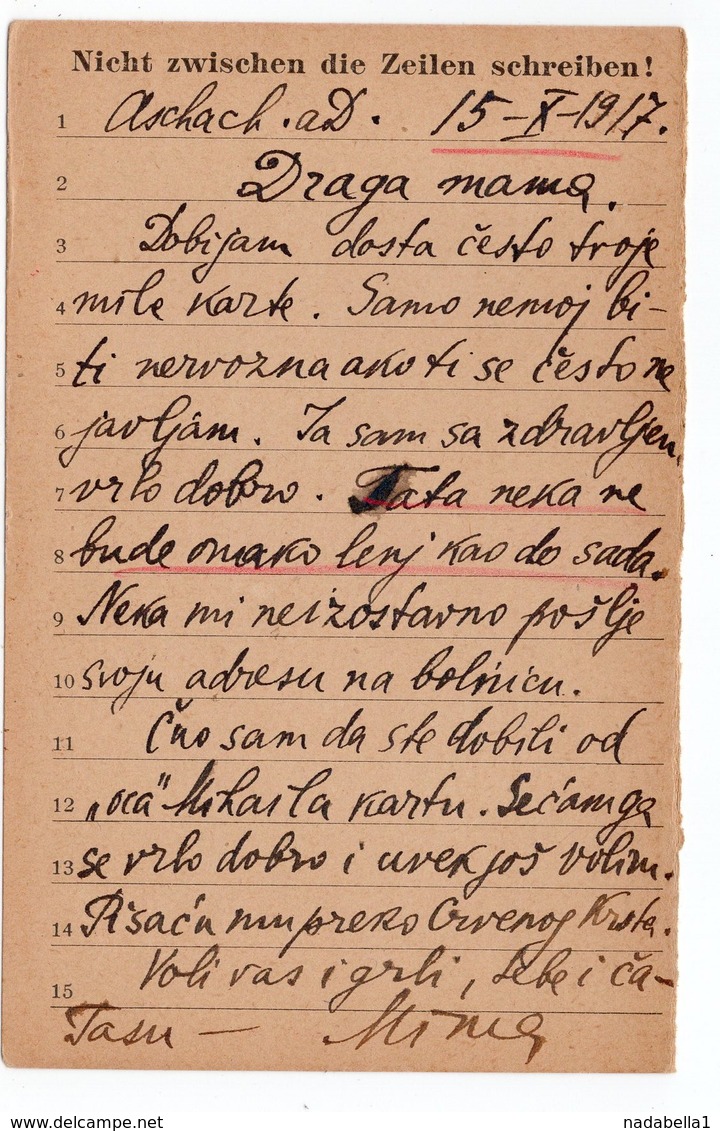 Nicht zwischen die Zeilen schreiben!
1 Aschach. aD. 15-X-1917.
2 Draga mama.
3 Dobijam dosta često tvoje
4 mile karte. Samo nemoj bi-
5 ti nervozna ako ti se često ne
6 javljam. Ja sam sa zdravljem
7 vrlo dobro. Tata neka ne
8 bude onako lenj kao do sada.
9 Neka mi neizostavno pošlje
10 svoju adresu na bolnicu.
11 Čuo sam da ste dobili od
12 „oca" Mihaila kartu. Sećam ga
13 se vrlo dobro i uvek još volim.
14 Pisaću mu preko Crvenog Krsta.
15 Voli vas i grli, tebe i ča-
Tasu —
nadabella1